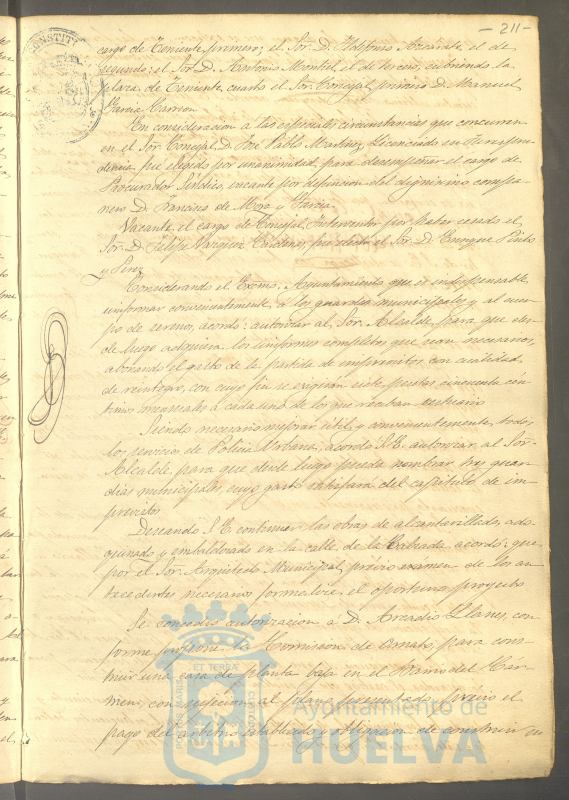 - 211 -
cargo de Teniente primero; el Sor. D. Ildefonso el de
segundo; el Sor. D. Antonio Montiel el de tercero, cubriendo la
plaza de Teniente cuarto el Sor. Concejal primero D. Manuel
Garcia Carrion
En consideracion a las especiales circunstancias que concurren
en el Sor. Concejal D. José Pablo Martinez, Licenciado en Jurispru-
dencia, fué elegido por unanimidad para desempeñar el cargo de
Procurador Sindico, vacante por defuncion del dignisimo compa-
ñero D. Francisco de Mora y Garcia
Vacante el cargo de Concejal Interventor por haber cesado el
Sor. D. Felipe Vazquez fué electo el Sor. D. Enrique Pinto
y Perez
Considerando el Excmo. Ayuntamiento que es indispensable
uniformar convenientemente a los guardias municipales y al cuer-
po de serenos, acordó: autorizar al Sor. Alcalde para que des-
de luego adquiera los uniformes completos que sean necesarios,
abonando el gasto de la partida de imprevistos con cualidad
de reintegro, con cuyo fin se exigiran siete pesetas cincuenta cén-
timos mensuales á cada uno de los que reciban vestuario
Siendo necesario mejorar util y convenientemente todos
los servicios de Policia Urbana, acordó S.E. autorizar al Sor.
Alcalde, para que desde luego pueda nombrar tres guar-
dias municipales, cuyo gasto satisfará del capitulo de im-
previstos
Deseando S.E. continuar las obras de alcantarillado, ado-
quinado y embaldosado en la calle de la Calzada acordó: que
por el Sor. Arquitecto Municipal, previo examen de los an-
tecedentes necesarios formalice el oportuno proyecto
Se concedió autorizacion a D. Arcadio Llanes, con-
forme propone la Comision de Ornato, para cons-
truir una casa de planta baja en el Barrio del Car-
men, con sujecion al plano presentado, prévio el
pago del arbitrio establecido y obligacion de construir en
Ayuntamiento de
HUELVA